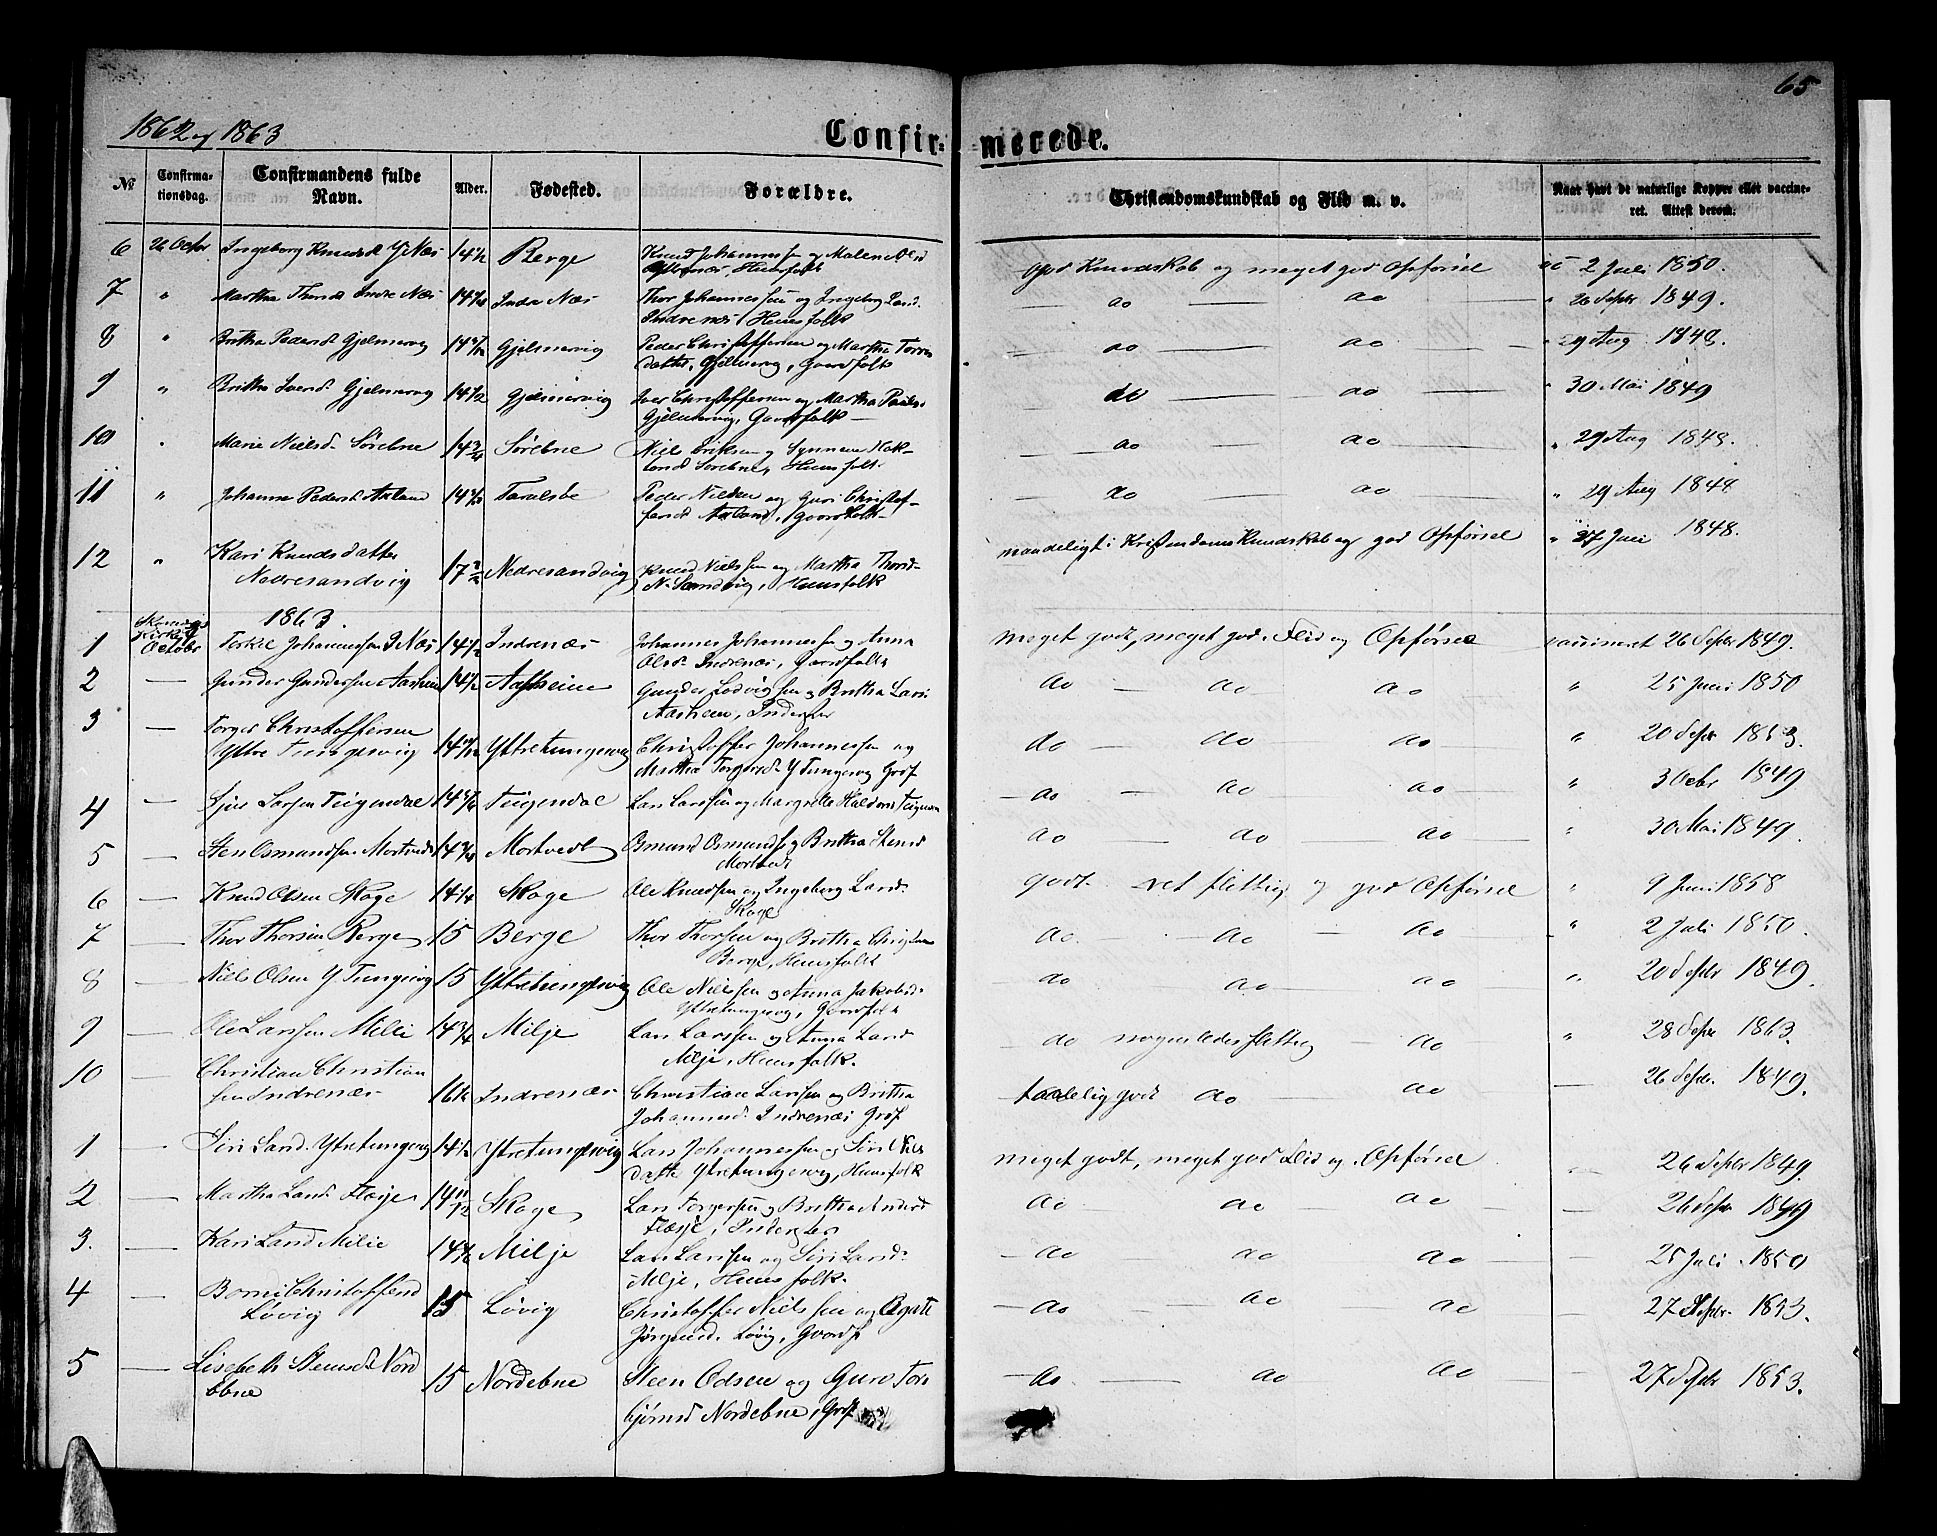 65
1862 og 1863
Confirmerede.
№ Confirmationsdag. Confirmandens fulde Navn. Alder. Fødested. Forældre. Christendomskundskab og Flid m. v. Naar havt de naturlige Kopper eller vaccineret. Attest derom.
6 26 Octbr Ingeborg Knudsd Y Næs 14 1/2 Berge Knud Johannessen og Malene
Ytrenæs, Huusfolk god Kundskab og meget god Opførsel 2 Juli 1850.
7 " Martha Thorsd Indre Næs Indre Næs Thor Johannessen og Ingeborg Larsd.
Indrenæs Huusfolk do do " 26 Septbr 1849.
8 " Brittha Pedersd Gjelmervig Gjelmervig Peder Christoffersen og Martha
datter, Gjelmervig, Gaardfolk do do 29 Aug 1848.
9 " Brittha Iversd Gjelmervig 14 1/2 Gjelmervig Iver Christoffersen og Martha Paulsd
Gjelmervig, Gaardfolk do do " 30 Mai 1849
10 " Marie Nielsd Sørebne 14 3/4 Sørebne Niels Eriksen og Synneve
Sørebne, Huusfolk do do " 29 Aug 1848.
11 " Johanna Pedersd Axland Peder Nielsen og Guri Christof-
fersd Axland, Gaardfolk do do " 29 Aug 1848
12 " Kari Knudsdatter
Nedresandvig 17 Nedresandvig Knud Nielssen og Martha Thorsd
N. Sandvig, Huusfolk maadeligt i Kristendoms Kundskab og god Opførsel " 27 Juli 1848.
1863.
Kirke
1 October Terkel Johannessen I Næs 14 1/2 Indrenæs Johannes Johannessen og Anna
Olsd Indrenæs, Gaardfolk meget godt, meget god Flid og Opførsel vaccineret 26 Septbr 1849.
2 — Gunder Gundersen Aasheim 14 1/2 Aasheim Gunder Lodvigsen og Brittha Larsd
Aasheim, Inderster do do do " 25 Juni 1850
3 — Torger Christoffersen
Ytre Tungesvig Ytretungesvig Christoffer Johannessen og
Martha Torgersd Y Tungesvig Grdf do do do " 20 Septbr 1853.
4 — Larsen Teigendal Teigendal Lars Larssen og Margrethe Teigendal do do do " 3 Octbr 1849
5 — Sten Osmundsen Mortvedt Mortvedt Osmund Osmundsen og Brittha Stensd
Mortvedt do do do " 30 Mai 1849.
6 — Knud Olsen Skoge 14 1/4 Skoge Ole Knudsen og Ingeborg Larsd.
Skoge godt ret flittig og god Opførsel " 9 Juni 1858
7 — Thor Thorsen Berge 15 Berge Thor Thorsen og Brittha
Berge, Huusfolk do do do " 2 Juli 1850.
8 — Niels Olsen Y Tungesvig 15 Ytretungesvig Ole Nielssen og Anna Jakobsd.
Ytretungesvig, Gaardfolk do do do " 20 Septbr 1849.
9 — Ole Larssen Milje 14 3/4 Milje Lars Larssen og Anna Larsd
Milje, Huusfolk. do nogenledes flittig do " 28 Septbr 1863.
10 — Christian Christian
sen Indrenæs 16 1/2 Indrenæs Christian Larssen og Brittha
Johannesd. Indrenæs Grdf taalelig godt do do — 26 Septbr. 1849.
1 — Siri Larsd. Ytretungesvig 14 1/2 Ytretungesvig Lars Johannessen og Siri Niels
datte Ytretungesvig, Huusfolk meget godt, meget god Flid og Opførsel 26 Septbr 1849.
2 — Martha Larsd. Flæsje 14 11/12 Skoge Lars Torgersen og Brittha
Flæsje, Inderster do do do — 26 Septbr 1849
3. — Kari Larsd Milje Milje Lars Larssen og Siri Larsd.
Milje, Huusfolk. do do do — 25 Juli 1850
4 — Christoffersd
Løvig 15 Løvig Christoffer Nielssen og Agate
Løvig, Gaardf do do do — 27 Septbr. 1853.
5 — Lisebeth Steensd. Nord
ebne 15 Nordebne Steen Odsen og Guro Tor
bjørnsd Nordebne, Grdf do do do — 27 Septbr 1853.